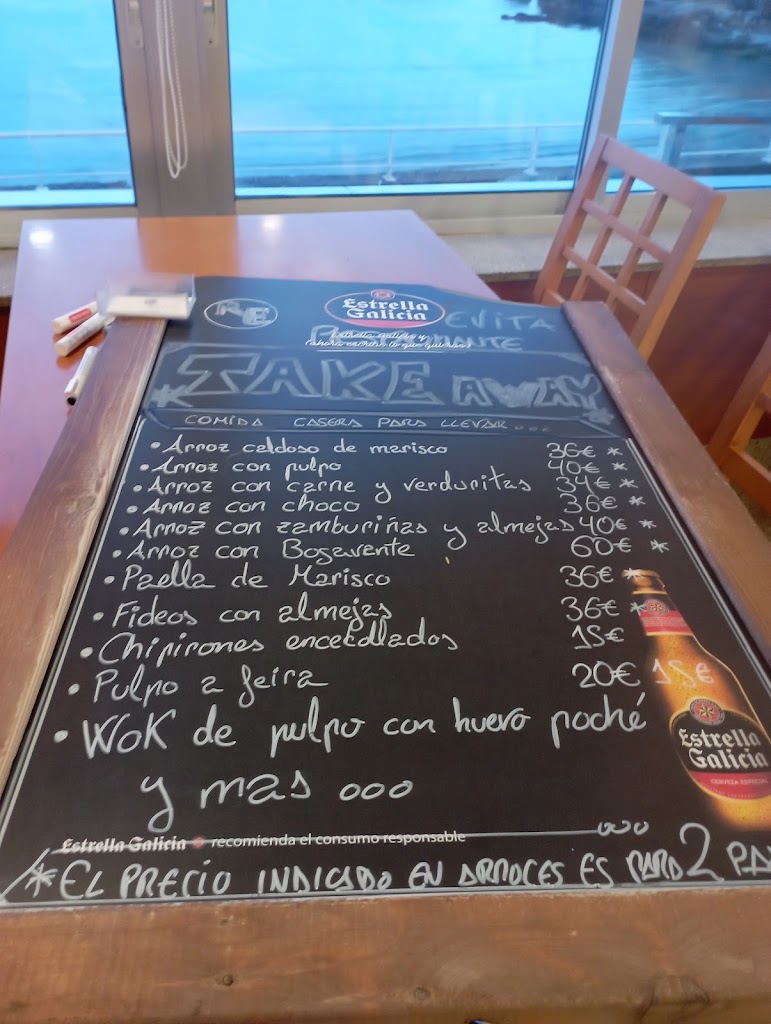 RE
Estrella Galicia
EVITA
TAKE AWAY
COMIDA CASERA PARA LLEVAR...
• Arroz caldoso de marisco 36€ *
• Arroz con pulpo 40€ *
• Arroz con carne y verduritas 34€ *
• Arroz con choco 36€ *
• Arroz con zamburiñas y almejas 40€ *
• Arroz con Bogavente 60€ *
• Paella de Marisco 36€ *
• Fideos con almejas 36€ *
• Chipirones encebollados 15€
• Pulpo a feira 20€ 15€
• WOK de pulpo con huevo poché
y mas ooo
Estrella Galicia
CERVEZA ESPECIAL
Estrella Galicia recomienda el consumo responsable
* EL PRECIO INDICADO EN ARROCES ES PARA 2 PA